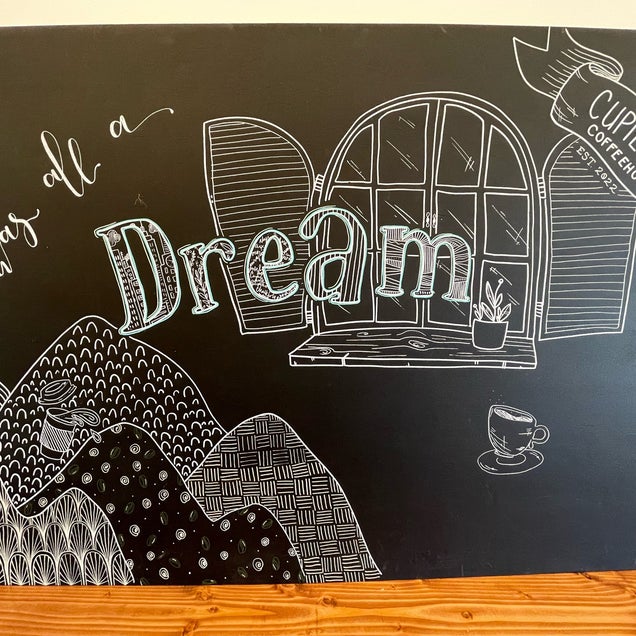 was all a
Dream
CUPI
COFFEEHO
EST. 2022